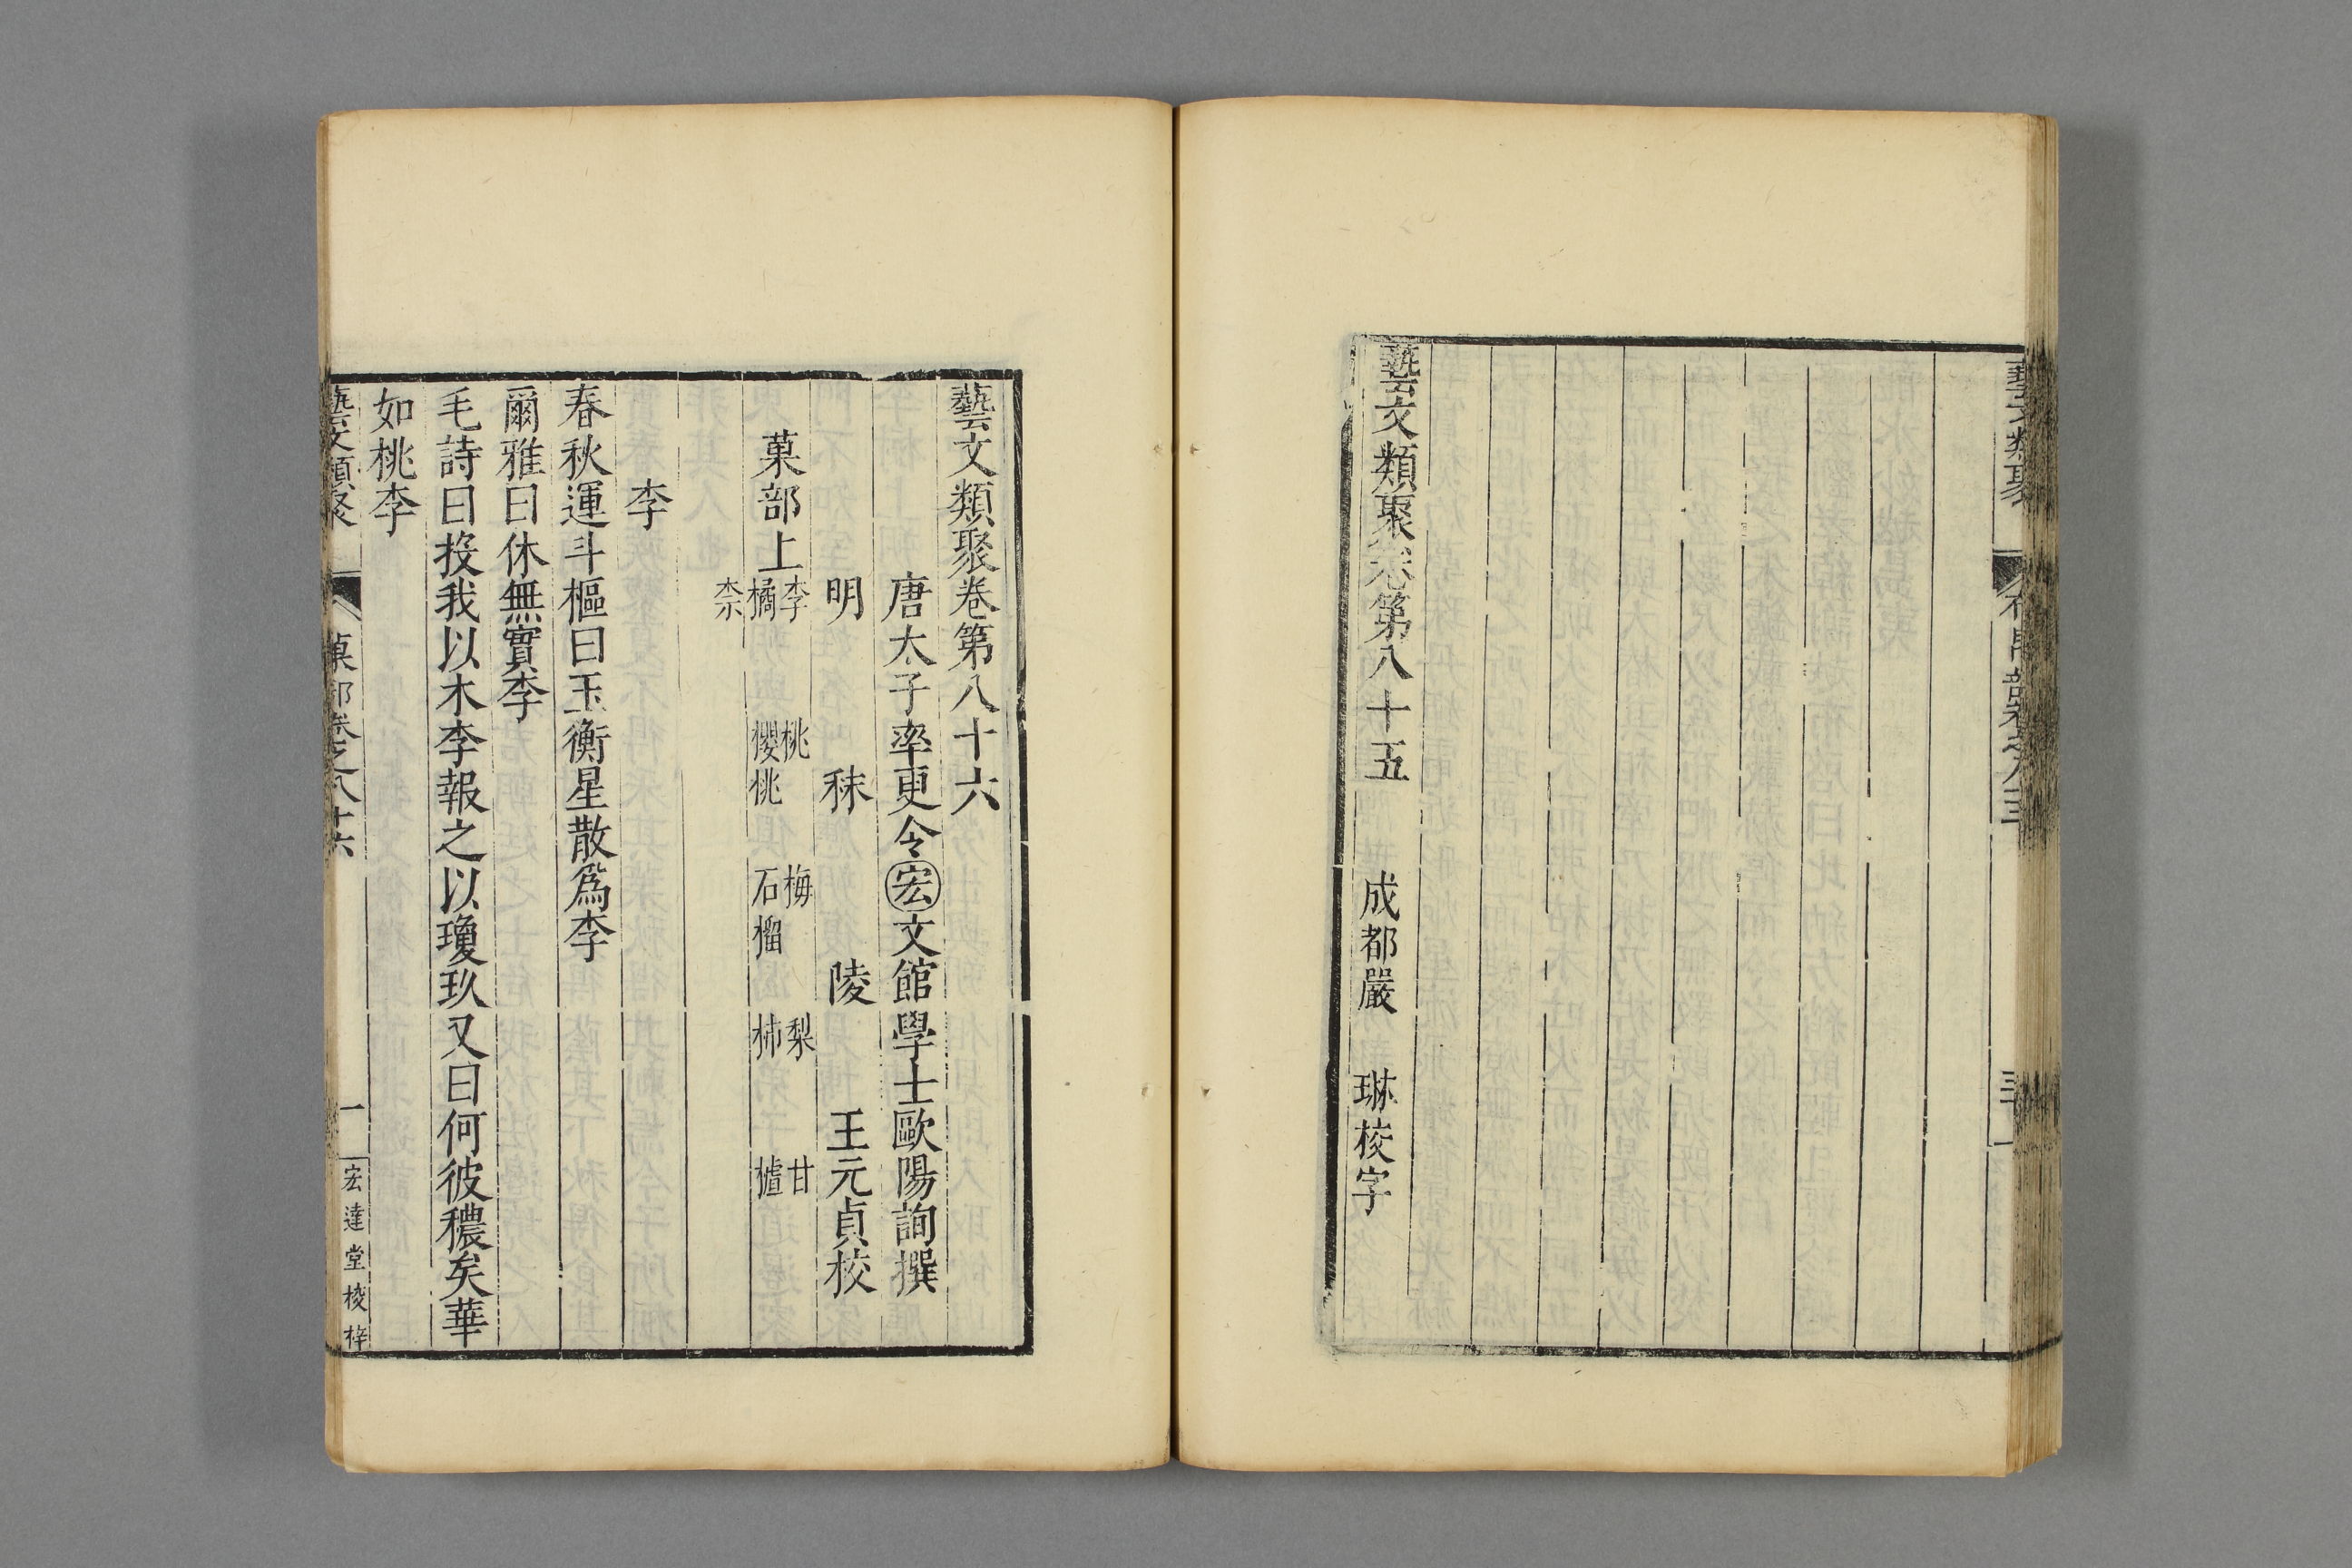 藝文類聚卷第八十五　成都嚴　琳校字
藝文類聚卷第八十六
唐太子率更令宏文館學士歐陽詢撰
明　秣　陵　王元貞校
菓部上
李　桃　梅　梨　甘
橘　櫻桃　石榴　柿　樝
柰
李
春秋運斗樞曰玉衡星散爲李
爾雅曰休無實李
毛詩曰投我以木李報之以瓊玖又曰何彼穠矣華
如桃李
藝文類聚　菓部卷之八十六　一　宏達堂校梓